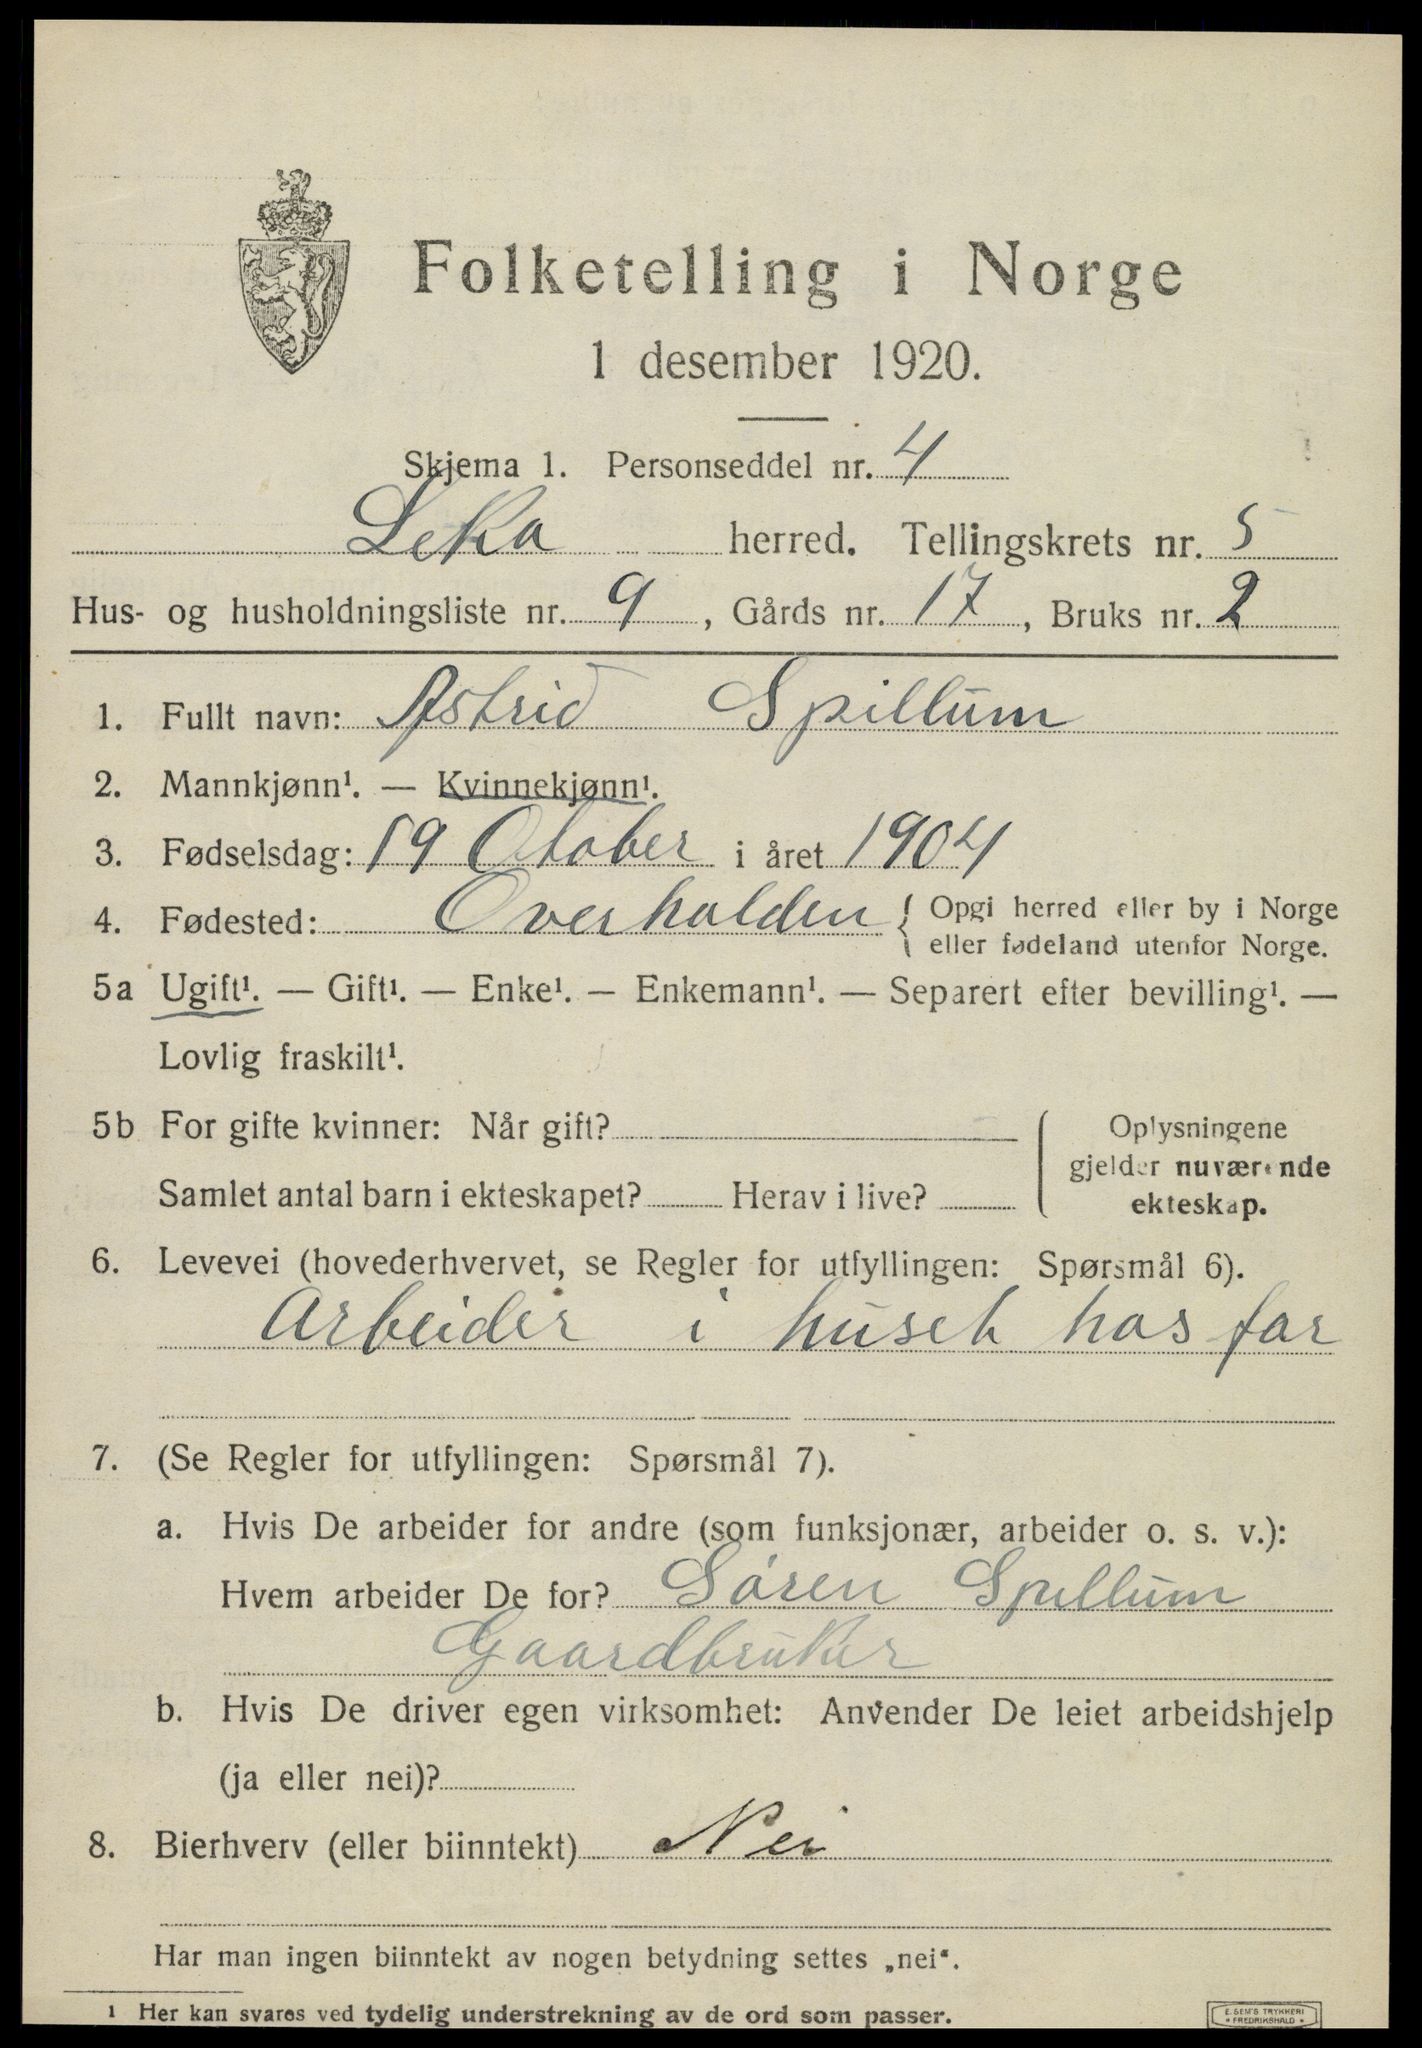 Folketelling i Norge
1 desember 1920.
Skjema 1. Personseddel nr. 4
Leka herred. Tellingskrets nr. 5
Hus- og husholdningsliste nr. 9, Gårds nr. 17, Bruks nr. 2
1. Fullt navn: Astrid Spillum
2. Mannkjønn¹. — Kvinnekjønn¹.
3. Fødselsdag: 19 Otober i året 1904
4. Fødested: Overhalden { Opgi herred eller by i Norge
eller fødeland utenfor Norge.
5a Ugift¹. — Gift¹. — Enke¹. — Enkemann¹. — Separert efter bevilling¹. —
Lovlig fraskilt¹.
5b For gifte kvinner: Når gift?
Samlet antal barn i ekteskapet? Herav i live?
Oplysningene
gjelder nuværende
ekteskap.
6. Levevei (hovederhvervet, se Regler for utfyllingen: Spørsmål 6).
Arbeider i huset hos far
7. (Se Regler for utfyllingen: Spørsmål 7).
a. Hvis De arbeider for andre (som funksjonær, arbeider o. s. v.):
Hvem arbeider De for? Søren Spillum
Gaardbruker
b. Hvis De driver egen virksomhet: Anvender De leiet arbeidshjelp
(ja eller nei)?
8. Bierhverv (eller biinntekt) Nei
Har man ingen biinntekt av nogen betydning settes „nei“.
1 Her kan svares ved tydelig understrekning av de ord som passer.
E. SEM'S TRYKKERI
* FREDRIKSHALD *